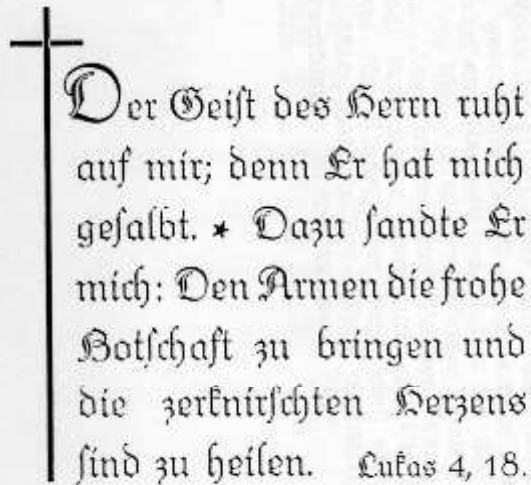 Der Geiſt des Herrn ruht
auf mir; denn Er hat mich
geſalbt. * Dazu ſandte Er
mich: Den Armen die frohe
Botſchaft zu bringen und
die zerknirſchten Herzens
ſind zu heilen. Lukas 4, 18.